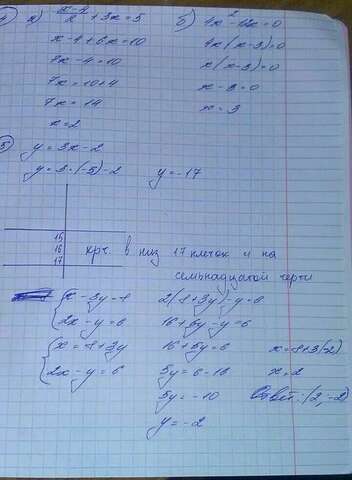 а) x-4/2 + 3x = 5
x - 4 + 6x = 10
7x - 4 = 10
7x = 10 + 4
7x = 14
x = 2
б) 4x² - 12x = 0
4x(x - 3) = 0
x(x - 3) = 0
x - 3 = 0
x = 3
5 y = 3x - 2
y = 3·(-5) - 2 y = -17
15
16
17
крч. в низ 17 клеток и на
семьнадцатой черти
{ x - 3y = 8
2x - y = 6
{ x = 8 + 3y
2x - y = 6
2(8 + 3y) - y = 6
16 + 6y - y = 6
16 + 5y = 6
5y = 6 - 16
5y = -10
y = -2
x = 8 + 3(-2)
x = 2
Ответ: (2, -2)